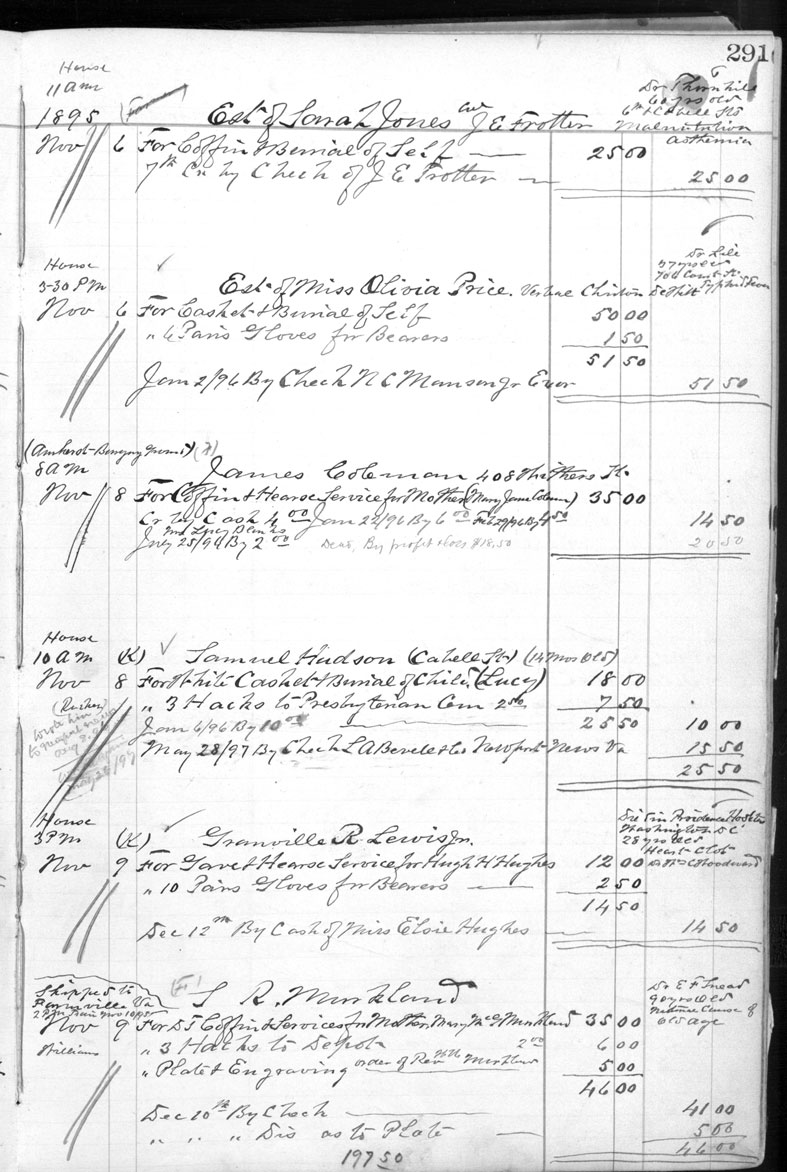 291
House
11 am
1895 Est. of Sarah Jones care J E Trotter
Dr Thornhill
60 yrs old
6th & Cabell Sts
Malnutrition
Asthenia
Nov 6 For Coffin & Burial of Self 25 00
7th Cr by Check of J E Trotter 25 00
House
3-30 PM
Est. of Miss Olivia Price. Verbal Clinton DeWitt
Dr Lile
37 yrs old
700 Court St.
Typhoid Fever
Nov 6 For Casket & Burial of Self 50 00
" 6 Pairs Gloves for Bearers 1 50
51 50
Jan 2/96 By Check N C Manson Jr Exor 51 50
(Amherst-
8 am
James Coleman 408 Withers St.
Nov 8 For Coffin & Hearse Service for Mother (Mary Jane Coleman) 35 00
Cr by Cash 4 00 Jan 22/96 By 6 00 Feb 29/96 By 4 50 14 50
By 2 00 Dead, By profit & loss $18.50 20 50
House
10 am (K) Samuel Hudson (Cabell St.) (14 Mos Old)
Nov 8 For White Casket & Burial of Child (Lucy) 18 00
" 3 Hacks to Presbyterian Cem 2 50 7 50
Jan 6/96 By 10 00 25 50 10 00
May 28/97 By Check L A Bevele & Co Newport News Va 15 50
25 50
House
3 PM (K) Granville R. Lewis Jr.
Died in Providence Hospital
Washington D C
28 yrs old
Heart Clot
Nov 9 For Grave & Hearse Service for Hugh H Hughes 12 00
" 10 Pairs Gloves for Bearers 2 50
14 50
Dec 12th By Cash of Miss Elsie Hughes 14 50
Shipped to
Va
S R. Murkland
Dr E F Snead
90 yrs old
Natural Cause of
Old age
Nov 9 For Coffin & Services for Mother, Mary Murkland 35 00
Williams " 3 Hacks to Depot 2 00 6 00
" Plate & Engraving order of Rev Murkland 5 00
46 00
Dec 10th By Check 41 00
" " " Dis as to Plate 5 00
46 00
197 50